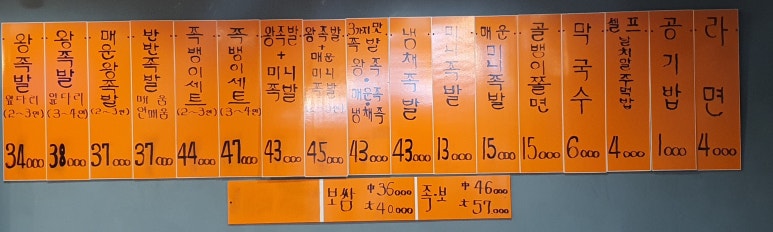 왕족발 앞다리 (2~3인) 34,000
왕족발 앞다리 (3~4인) 38,000
매운왕족발 (2~3인) 37,000
반반족발 매움 안매움 37,000
족뱅이세트 (2~3인) 44,000
족뱅이세트 (3~4인) 47,000
왕족발 + 미니족발 43,000
왕족발 + 매운미니족발 45,000
3가지맛족발 왕족·매운족·냉채족 43,000
냉채족발 43,000
미니족발 13,000
매운미니족발 15,000
골뱅이쫄면 15,000
막국수 6,000
셀프 날치알주먹밥 4,000
공기밥 1,000
라면 4,000
보쌈 中 36,000 大 40,000
족·보 中 46,000 大 57,000